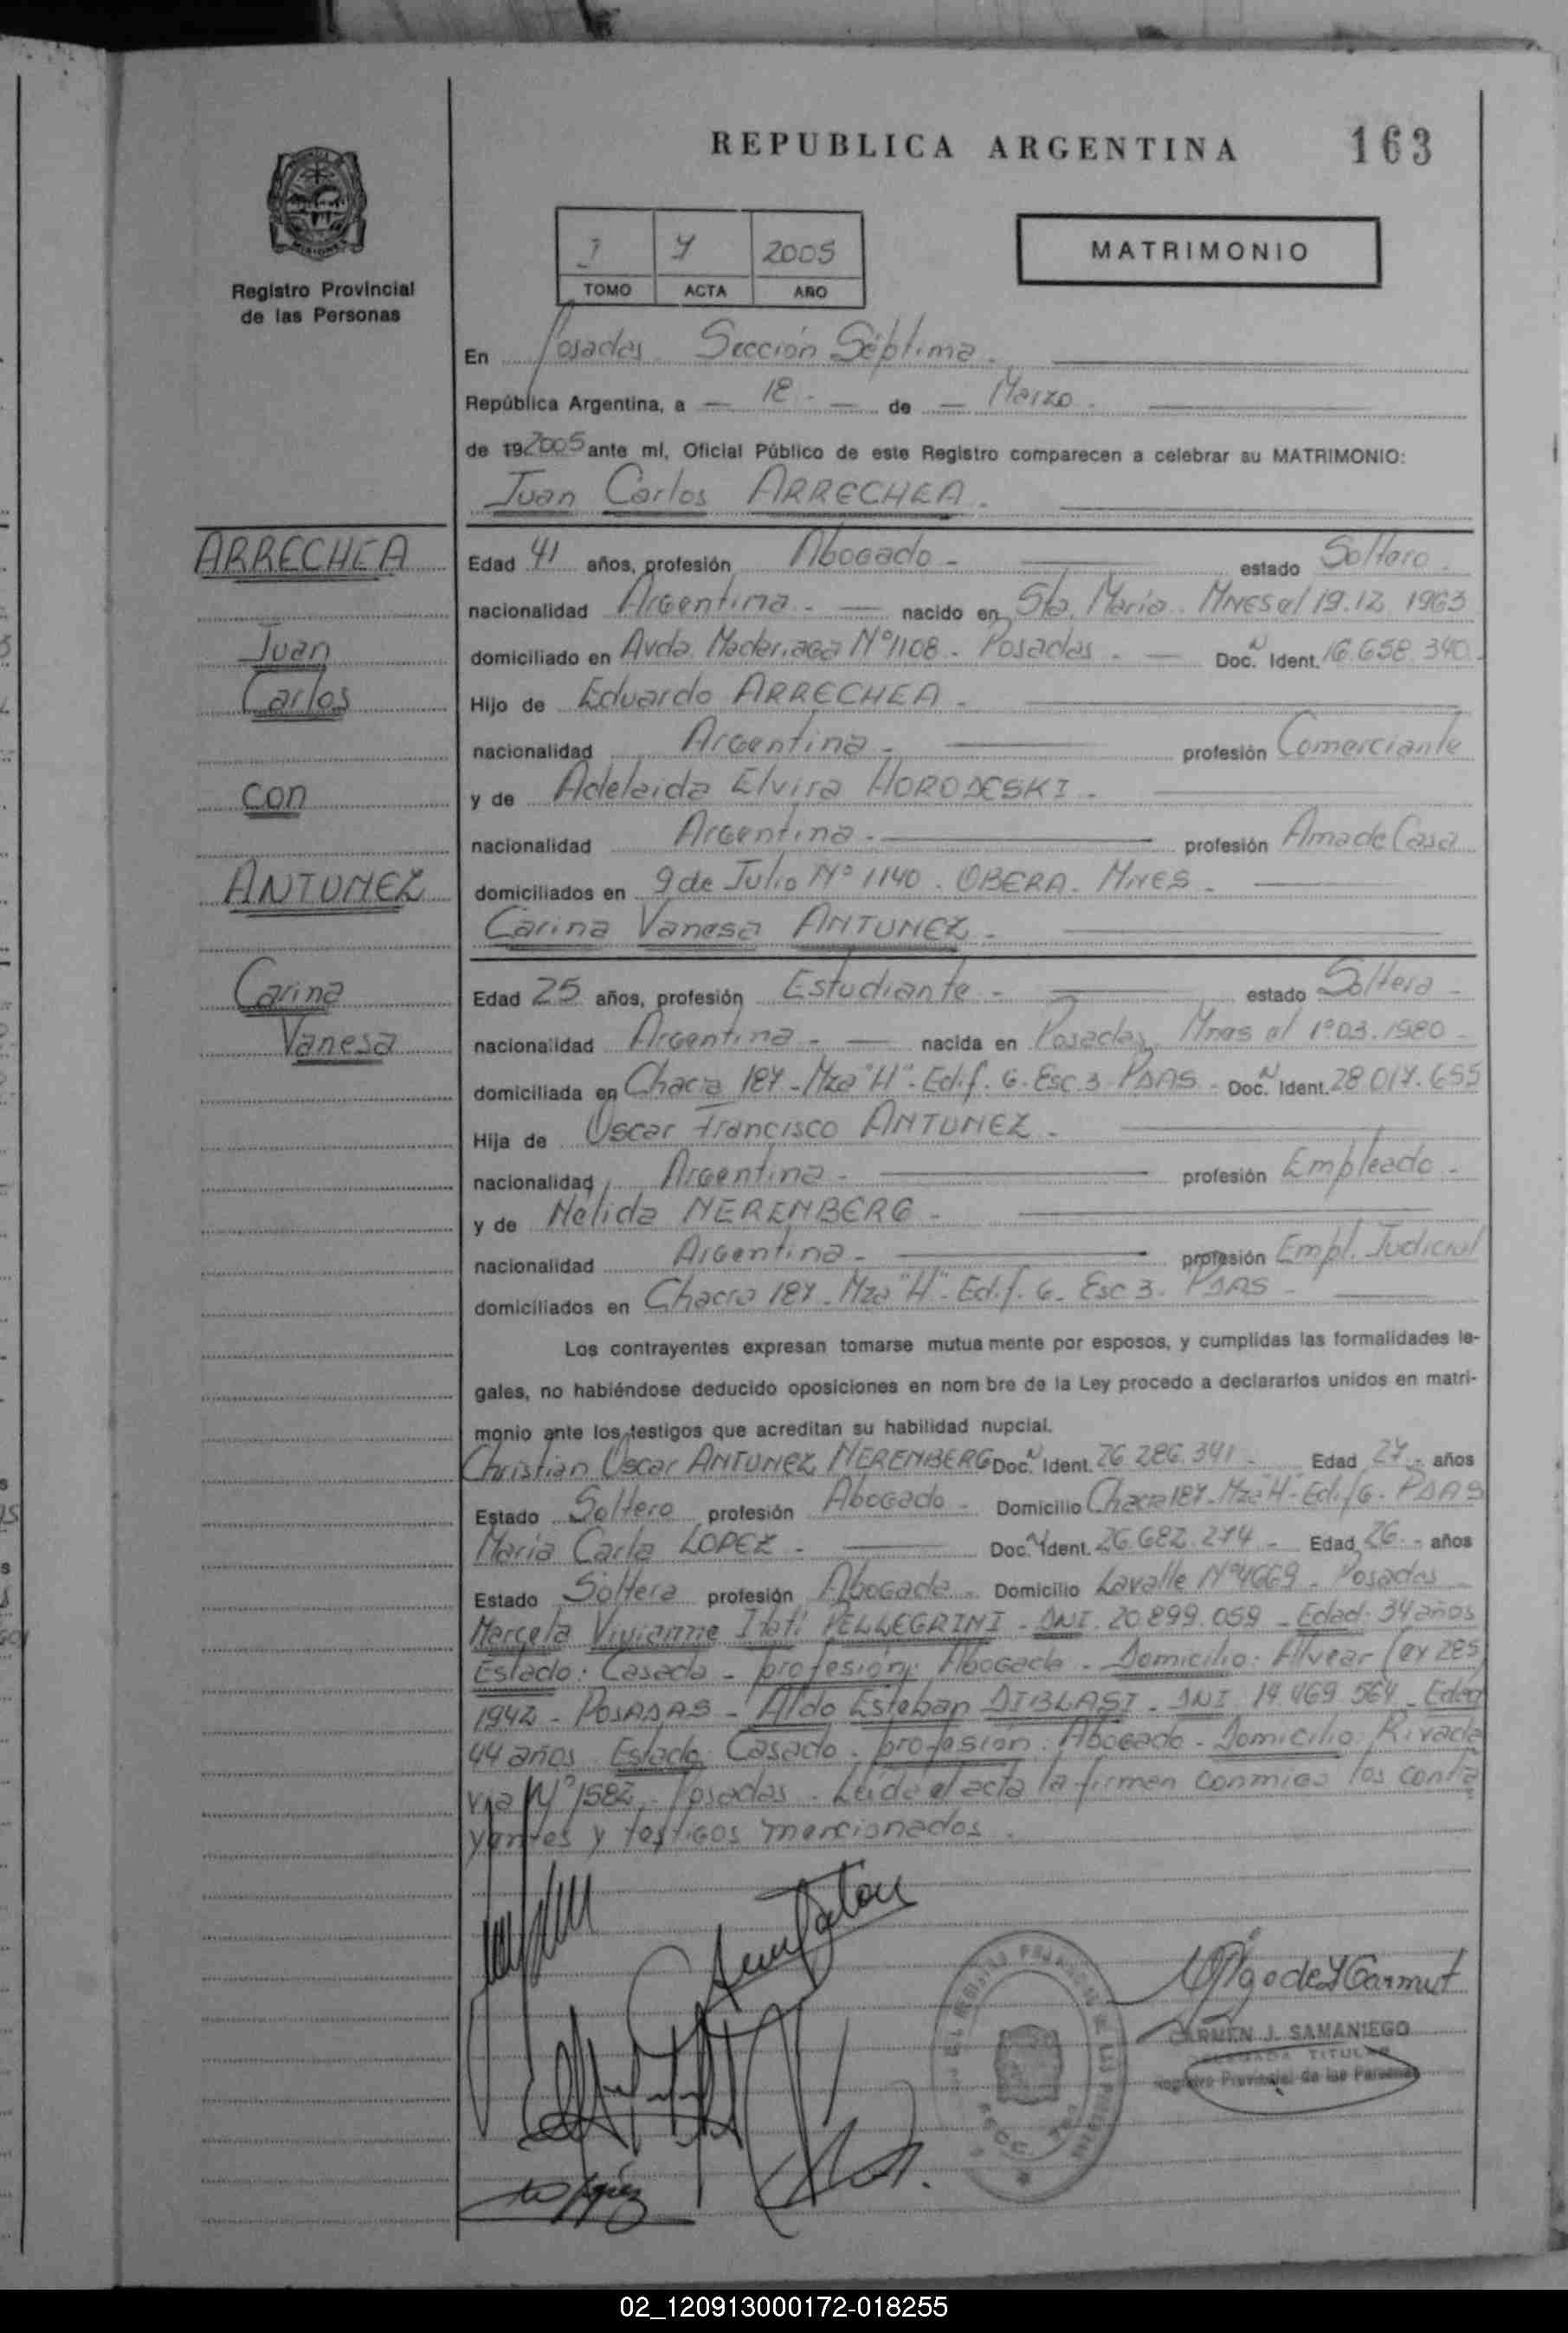 REPUBLICA ARGENTINA
163
Registro Provincial
de las Personas
1 7 2005
TOMO ACTA AÑO
MATRIMONIO
En Posadas Sección Séptima.
República Argentina, a 18 de Marzo.
de 192005 ante mí, Oficial Público de este Registro comparecen a celebrar su MATRIMONIO:
Juan Carlos ARRECHEA.
ARRECHEA
Juan
Carlos
con
ANTUNEZ
Carina
Vanesa
Edad 41 años, profesión Abogado - estado Soltero.
nacionalidad Argentina. - nacido en Sta. María. Mnes el 19.12.1963
domiciliado en Avda. Madariaga Nº 1108 - Posadas. - Doc. N Ident. 16.658.340.
Hijo de Eduardo ARRECHEA -
nacionalidad Argentina. profesión Comerciante
y de Adelaida Elvira HORODESKI.
nacionalidad Argentina. profesión Ama de Casa
domiciliados en 9 de Julio Nº 1140. OBERA. Mnes.
Carina Vanesa ANTUNEZ.
Edad 25 años, profesión Estudiante - estado Soltera -
nacionalidad Argentina - nacida en Posadas, Mnes el 1º.03.1980 -
domiciliada en Chacra 187 - Mza "H" - Edif. 6. Esc. 3 PDAS - Doc. N Ident. 28.017.655
Hija de Oscar Francisco ANTUNEZ -
nacionalidad Argentina - profesión Empleado -
y de Nelida NERENBERG -
nacionalidad Argentina - profesión Empl. Judicial
domiciliados en Chacra 187 - Mza "H" - Edif. 6 - Esc 3. PDAS -
Los contrayentes expresan tomarse mutua mente por esposos, y cumplidas las formalidades le-
gales, no habiéndose deducido oposiciones en nom bre de la Ley procedo a declararlos unidos en matri-
monio ante los testigos que acreditan su habilidad nupcial.
Christian Oscar ANTUNEZ NERENBERG Doc. N Ident. 26.286.341 - Edad 27 - años
Estado Soltero profesión Abogado - Domicilio Chacra 187 - Mza "H" - Edif 6 - PDAS
María Carla LOPEZ - Doc. N Ident. 26.682.274 - Edad 26 - años
Estado Soltera profesión Abogada - Domicilio Lavalle Nº 4669 - Posadas -
Marcela Vivianne Itatí PELLEGRINI - DNI. 20.899.059 - Edad: 34 años
Estado: Casada - profesión: Abogada - Domicilio: Alvear
1942 - POSADAS - Aldo Esteban DIBLASI - DNI 14.469.564 - Edad
44 años Estado: Casado. profesión: Abogado - Domicilio: Rivada
via Nº 1582 - Posadas - Leida el acta la firman conmigo los contra
yentes y testigos mencionados.
CARMEN J. SAMANIEGO
DELEGADA TITULAR
Registro Provincial de las Personas
02_120913000172-018255